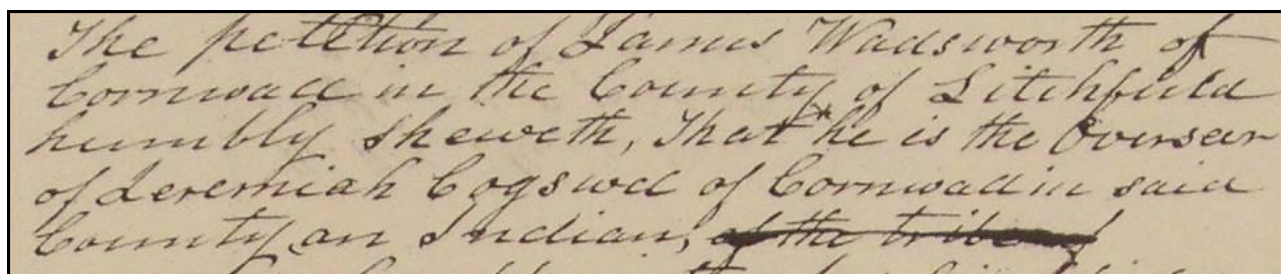 The petition of James Wadsworth of
Cornwall in the County of Litchfield
humbly sheweth, That he is the Overseer
of Jeremiah Cogswel of Cornwall in said
County, an Indian, of the tribe of